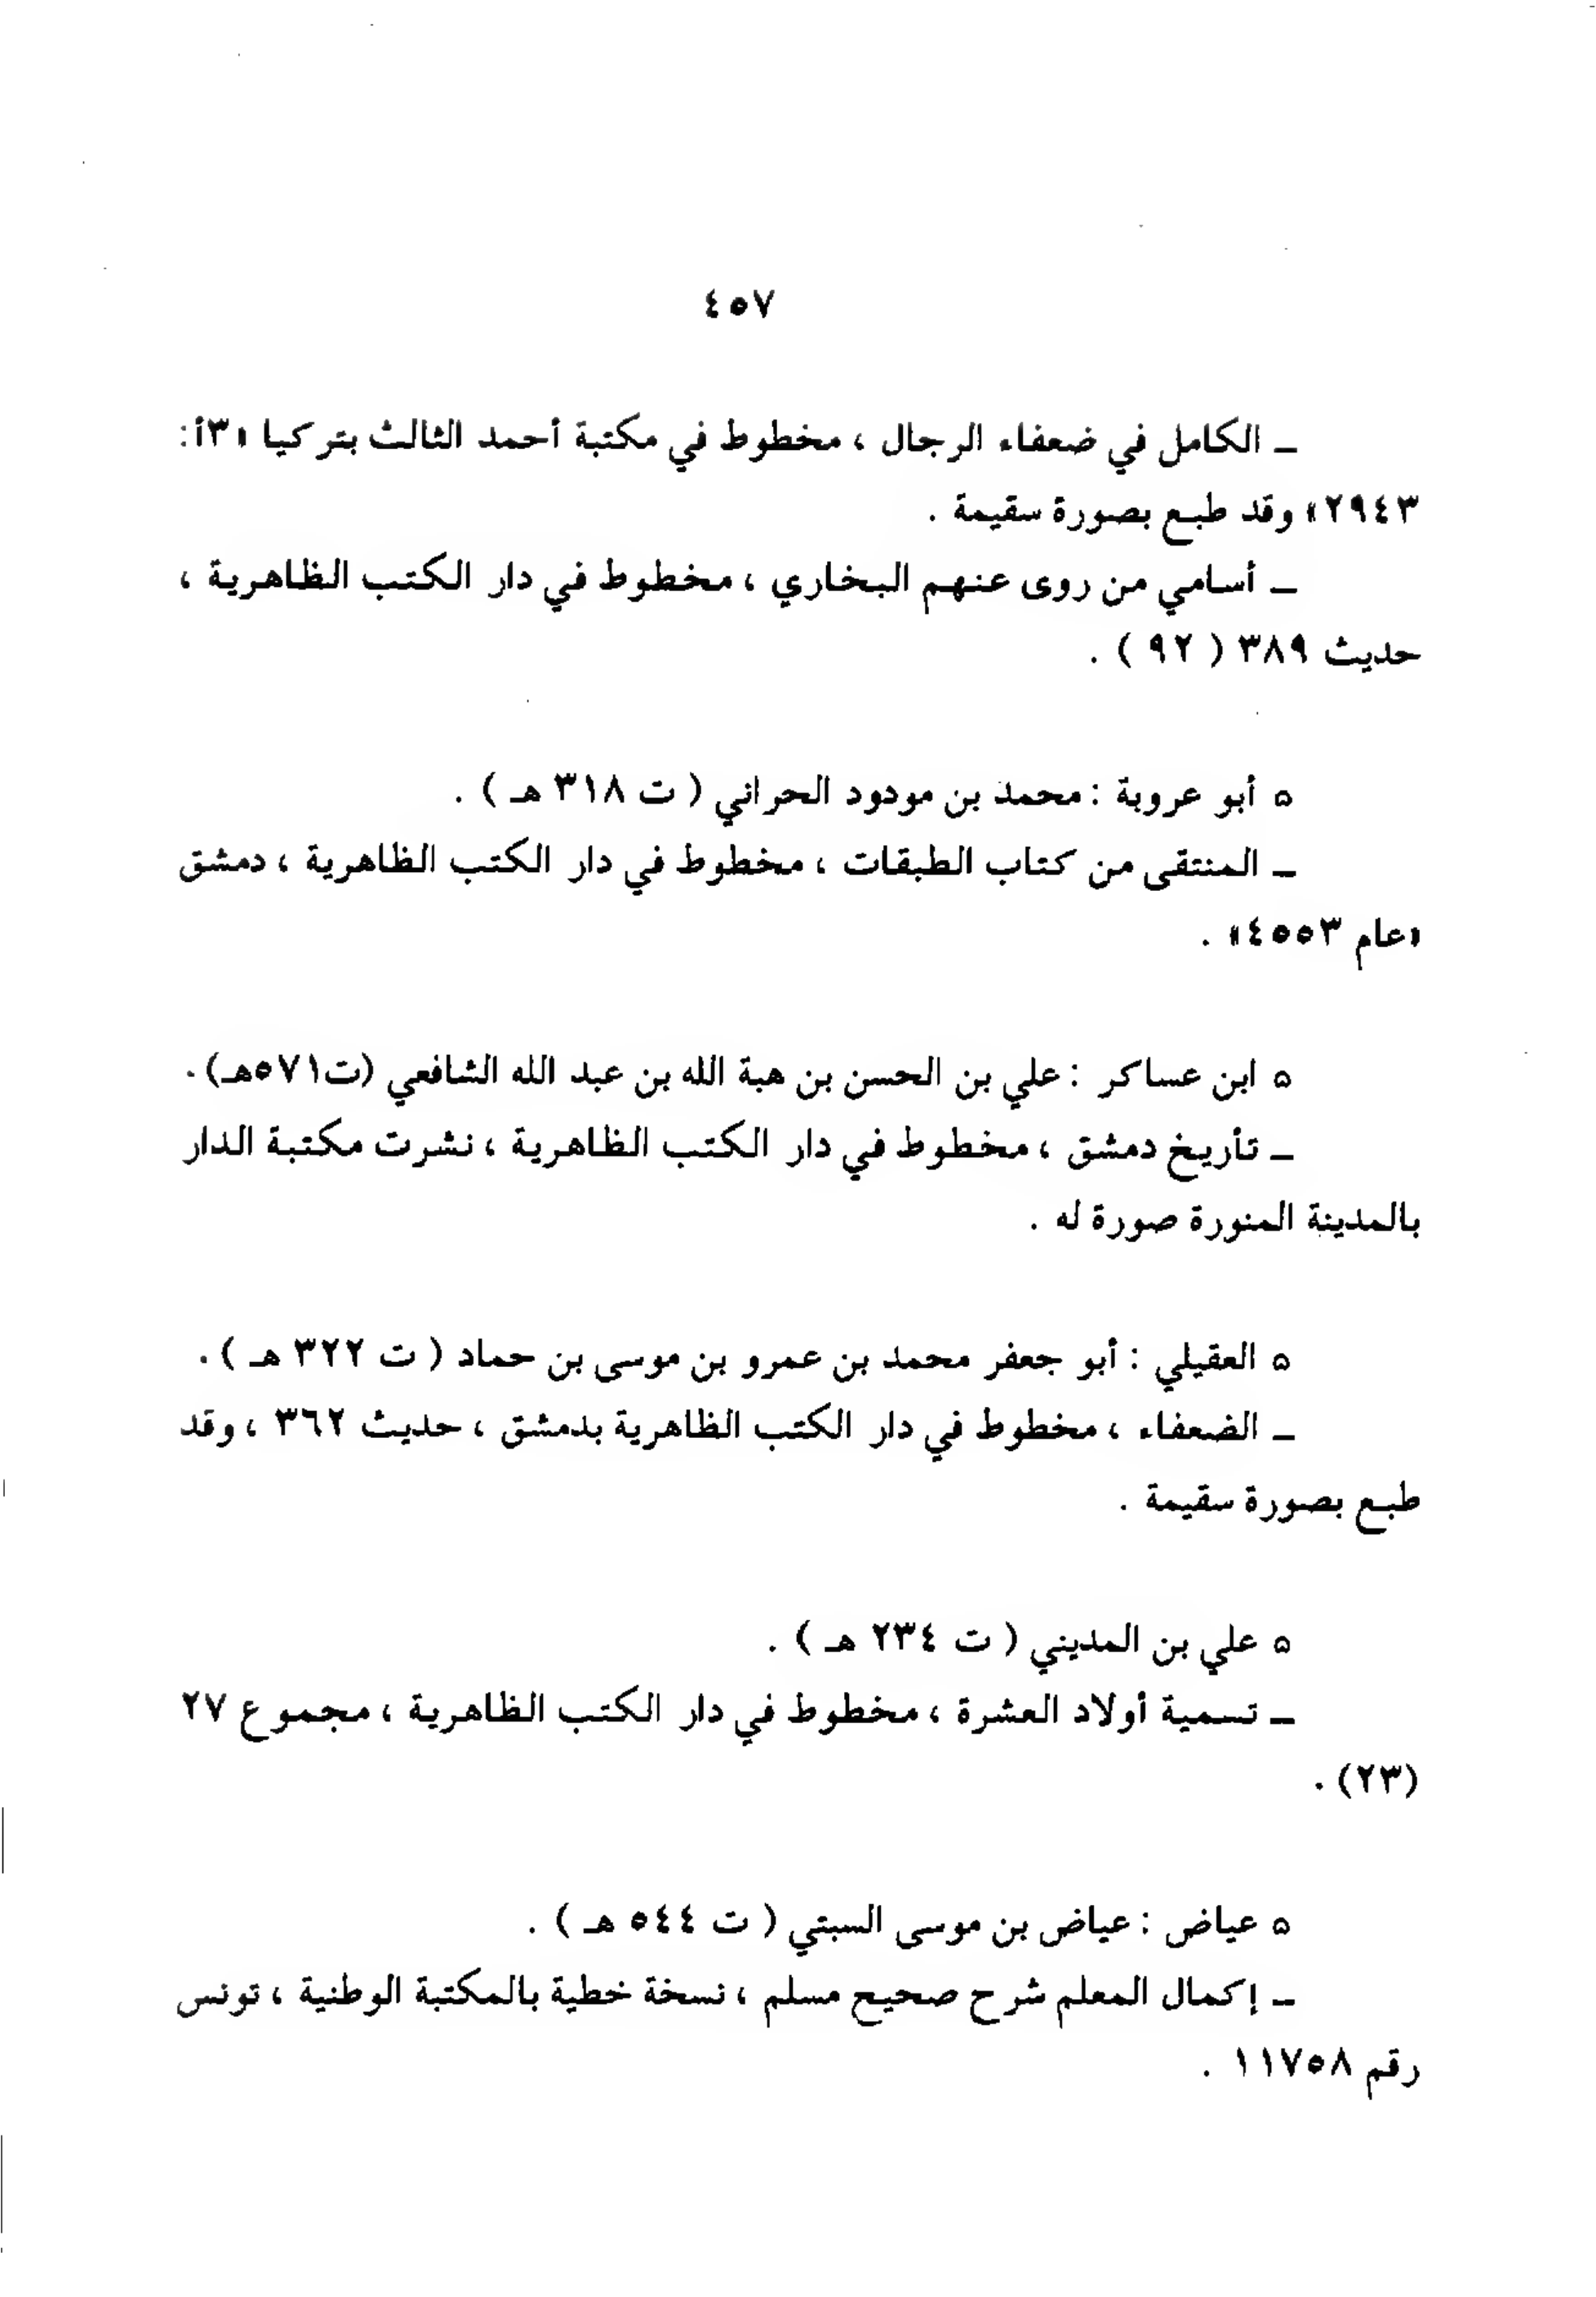 ٤٥٧
ــ الكامل في ضعفاء الرجال ، مخطوط في مكتبة أحمد الثالث بتركيا «٣أ:
٢٩٤٣» وقد طبع بصورة سقيمة .
ــ أسامي من روى عنهم البخاري ، مخطوط في دار الكتب الظاهرية ،
حديث ٣٨٩ ( ٩٢ ) .
٥ أبو عروبة : محمد بن مودود الحراني ( ت ٣١٨ هـ ) .
ــ المنتقى من كتاب الطبقات ، مخطوط في دار الكتب الظاهرية ، دمشق
«عام ٤٥٥٣» .
٥ ابن عساكر : علي بن الحسن بن هبة الله بن عبد الله الشافعي (ت٥٧١هـ) .
ــ تأريخ دمشق ، مخطوط في دار الكتب الظاهرية ، نشرت مكتبة الدار
بالمدينة المنورة صورة له .
٥ العقيلي : أبو جعفر محمد بن عمرو بن موسى بن حماد ( ت ٣٢٢ هـ ) .
ــ الضعفاء ، مخطوط في دار الكتب الظاهرية بدمشق ، حديث ٣٦٢ ، وقد
طبع بصورة سقيمة .
٥ علي بن المديني ( ت ٢٣٤ هـ ) .
ــ تسمية أولاد العشرة ، مخطوط في دار الكتب الظاهرية ، مجموع ٢٧
(٢٣) .
٥ عياض : عياض بن موسى السبتي ( ت ٥٤٤ هـ ) .
ــ إكمال المعلم شرح صحيح مسلم ، نسخة خطية بالمكتبة الوطنية ، تونس
رقم ١١٧٥٨ .